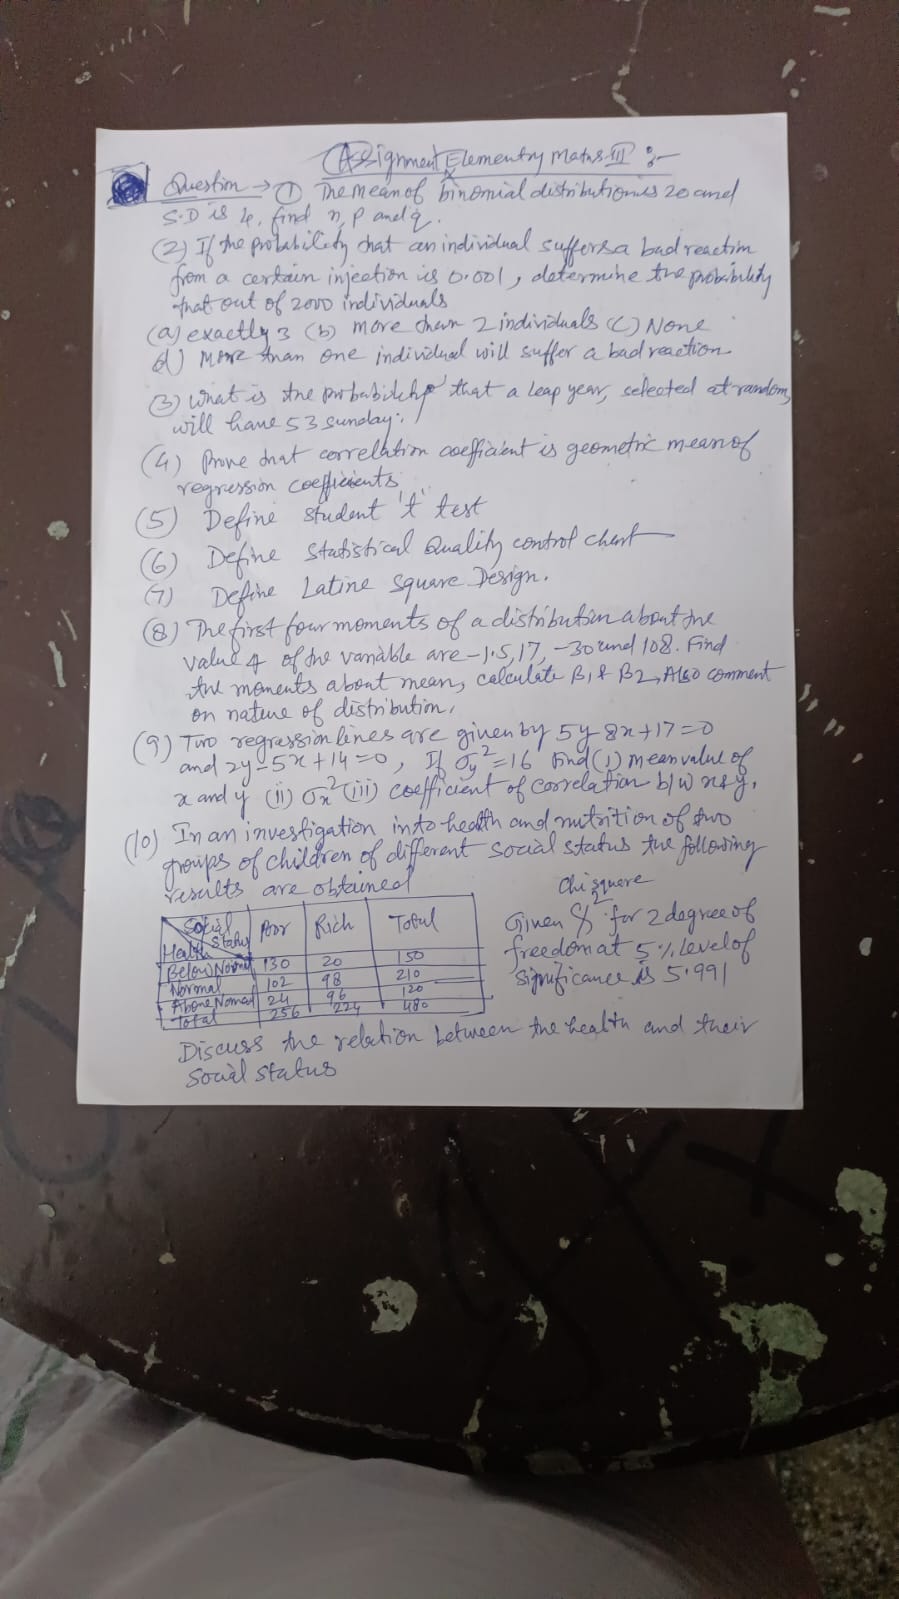 Assignment Elementry Maths III :-
Question → (1) The mean of binomial distribution is 20 and
S.D is 4, find n, p and q.
(2) If the probability that an individual suffers a bad reaction
from a certain injection is 0.001, determine the probability
that out of 2000 individuals
(a) exactly 3 (b) more than 2 individuals (c) None
d) More than one individual will suffer a bad reaction
(3) What is the probability that a leap year, selected at random,
will have 53 sunday.
(4) Prove that correlation coefficient is geometric mean of
regression coefficients
(5) Define student 't' test
(6) Define Statistical Quality control chart
(7) Define Latine Square Design.
(8) The first four moments of a distribution about the
value 4 of the variable are -1.5, 17, -30 and 108. Find
the moments about mean, calculate β1 & β2, Also comment
on nature of distribution.
(9) Two regression lines are given by 5y-8x+17=0
and 2y-5x+14=0, If σy²=16 Find (i) mean value of
x and y (ii) σx² (iii) coefficient of correlation b/w x & y.
(10) In an investigation into health and nutrition of two
groups of children of different social status the following
results are obtained
Social Status Poor Rich Total
Health
Below Normal 130 20 150
Normal 102 98 210
Above Normal 24 96 120
Total 256 224 480
Chi square
Given χ² for 2 degree of
freedom at 5% level of
significance is 5.991
Discuss the relation between the health and their
Social status